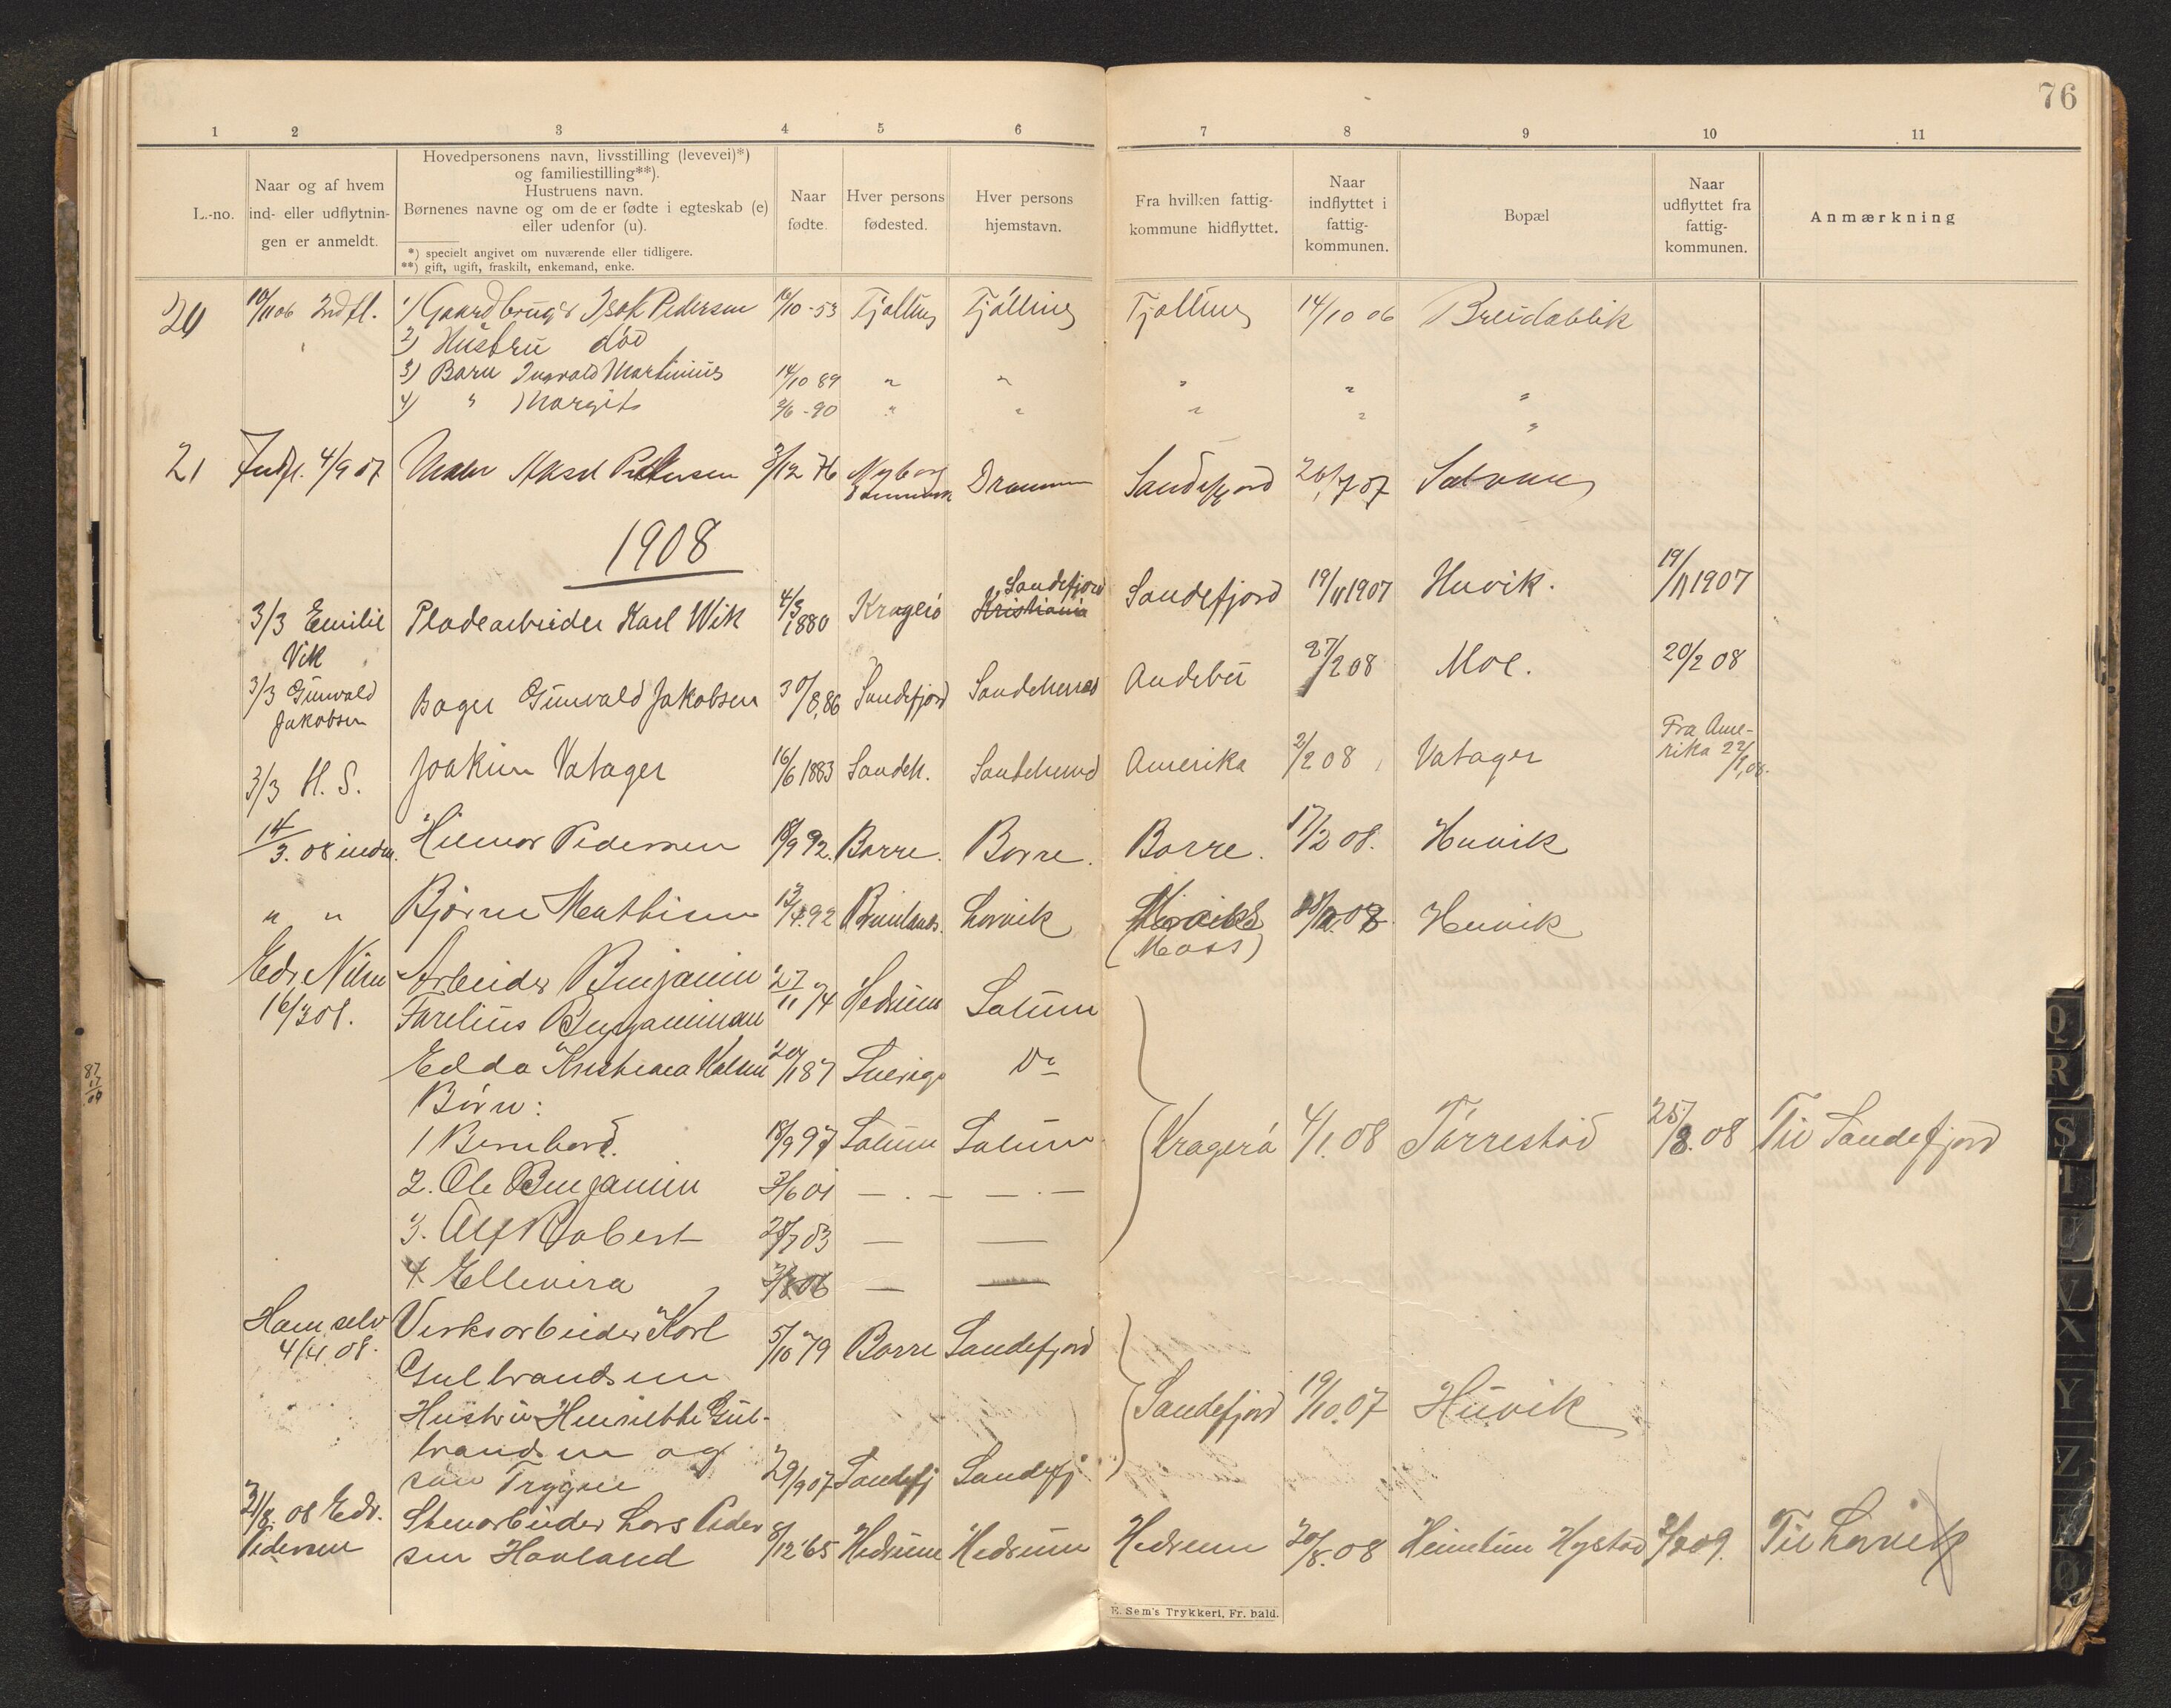 76
1 2 3 4 5 6 7 8 9 10 11
L.-no.
Naar og af hvem
ind- eller udflytnin-
gen er anmeldt.
Hovedpersonens navn, livsstilling (levevei)*)
og familiestilling**).
Hustruens navn.
Børnenes navne og om de er fødte i egteskab (e)
eller udenfor (u).
*) specielt angivet om nuværende eller tidligere.
**) gift, ugift, fraskilt, enkemand, enke.
Naar
fødte.
Hver persons
fødested.
Hver persons
hjemstavn.
Fra hvilken fattig-
kommune hidflyttet.
Naar
indflyttet i
fattig-
kommunen.
Bopæl
Naar
udflyttet fra
fattig-
kommunen.
Anmærkning
20 10/11 06 Indfl. 1) Gaardbruger Isak Pedersen 16/10-53 Tjølling Tjølling Tjølling 14/10 06 Breidablik
2) Hustru død
3) Barn Ingvald Martinius 14/10 89 " " " " "
4) " Margit 2/6-90 " " " " "
21 Indfl. 4/9 07 Aksel Pettersen 3/12 76 Nyborg Danmark Drammen Sandefjord 26/7 07
1908
Sandefjord
3/3 Emilie Pladearbeider Karl Wik 4/3 1880 Kragerø Kristiania Sandefjord 19/11 1907 Huvik. 19/11 1907
Vik
3/3 Gunvald Bager Gunvald Jakobsen 30/8,86 Sandefjord Sandeherred Andebu 27/2 08 Moe. 20/2 08
Jakobsen
3/3 H. S. Joakim Vatager 16/6 1883 Sandeh. Sandeherred Amerika 2/2 08 Vatager Fra Ame-
rika 22/1,08.
14/3. 08 indm. Hilmar Pedersen 18/9 92. Borre. Borre. Borre. 17/2 08. Huvik
" " Bjørne Mathisen 92 Brunlanes. Larvik 08. Huvik
(Moss)
Edv. Nilsen Arbeider Benjamin 27/11 74 Hedrum Solum
16/3 08. Farelius Benjaminsen
Edda Kristiana 87 Sverige Do
Børn:
1 Bernhard. 18/9 97 Solum Solum Kragerø 4/1.08 Tørrestad 25/8.08 Til Sandefjord
2. Ole Benjamin 3/6 01 — . — — . —
3. Alf Robert 28/7 03 — —
4. Ellevira 06 — —
Ham selv Verksarbeider Karl 5/10 79 Borre Sandefjord
4/4.08. Gulbrandsen
Hustru Henriette Gul- Sandefjord 19/10.07 Huvik
brandsen og
søn Trygve 29/9 07 Sandefj Sandefj
08 Edv. Stenarbeider Lars Peder
Pedersen sen Havland 8/12 65 Hedrum Hedrum Hedrum 20/8.08 Heimtun Hystad 09. Til Larvik
E. Sem's Trykkeri, Fr. hald.
87
17
09
Q
R
S
T
U
V
X
Y
Z
Æ
Ø